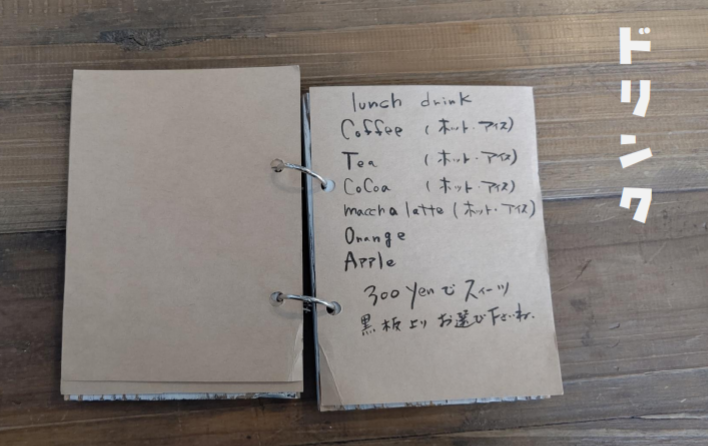 ドリンク
lunch drink
Coffee (ホット・アイス)
Tea (ホット・アイス)
CoCoa (ホット・アイス)
maccha latte (ホット・アイス)
Orange
Apple
300 Yenで スィーツ
黒板より お選び下さいね。